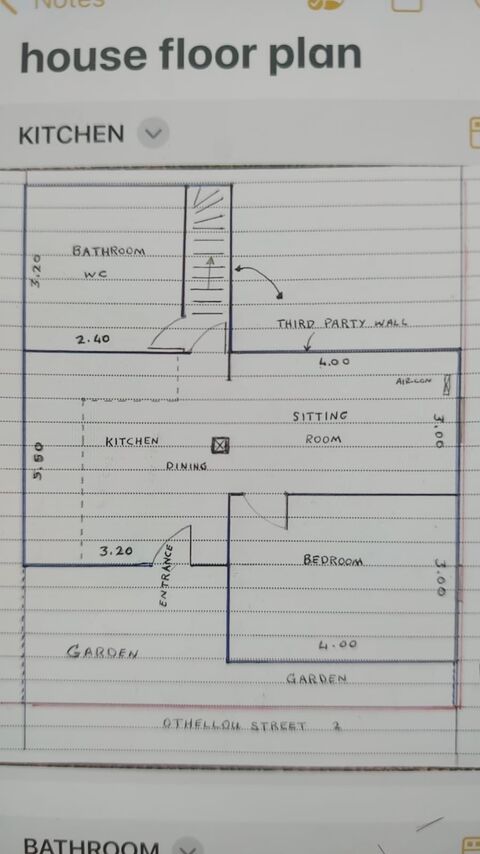 Notes
house floor plan
KITCHEN
BATHROOM
WC
3.20
2.40
THIRD PARTY WALL
4.00
AIRCON
SITTING
ROOM
3.00
KITCHEN
DINING
5.50
3.20
ENTRANCE
BEDROOM
3.00
4.00
GARDEN
GARDEN
OTHELLOU STREET 2
BATHROOM